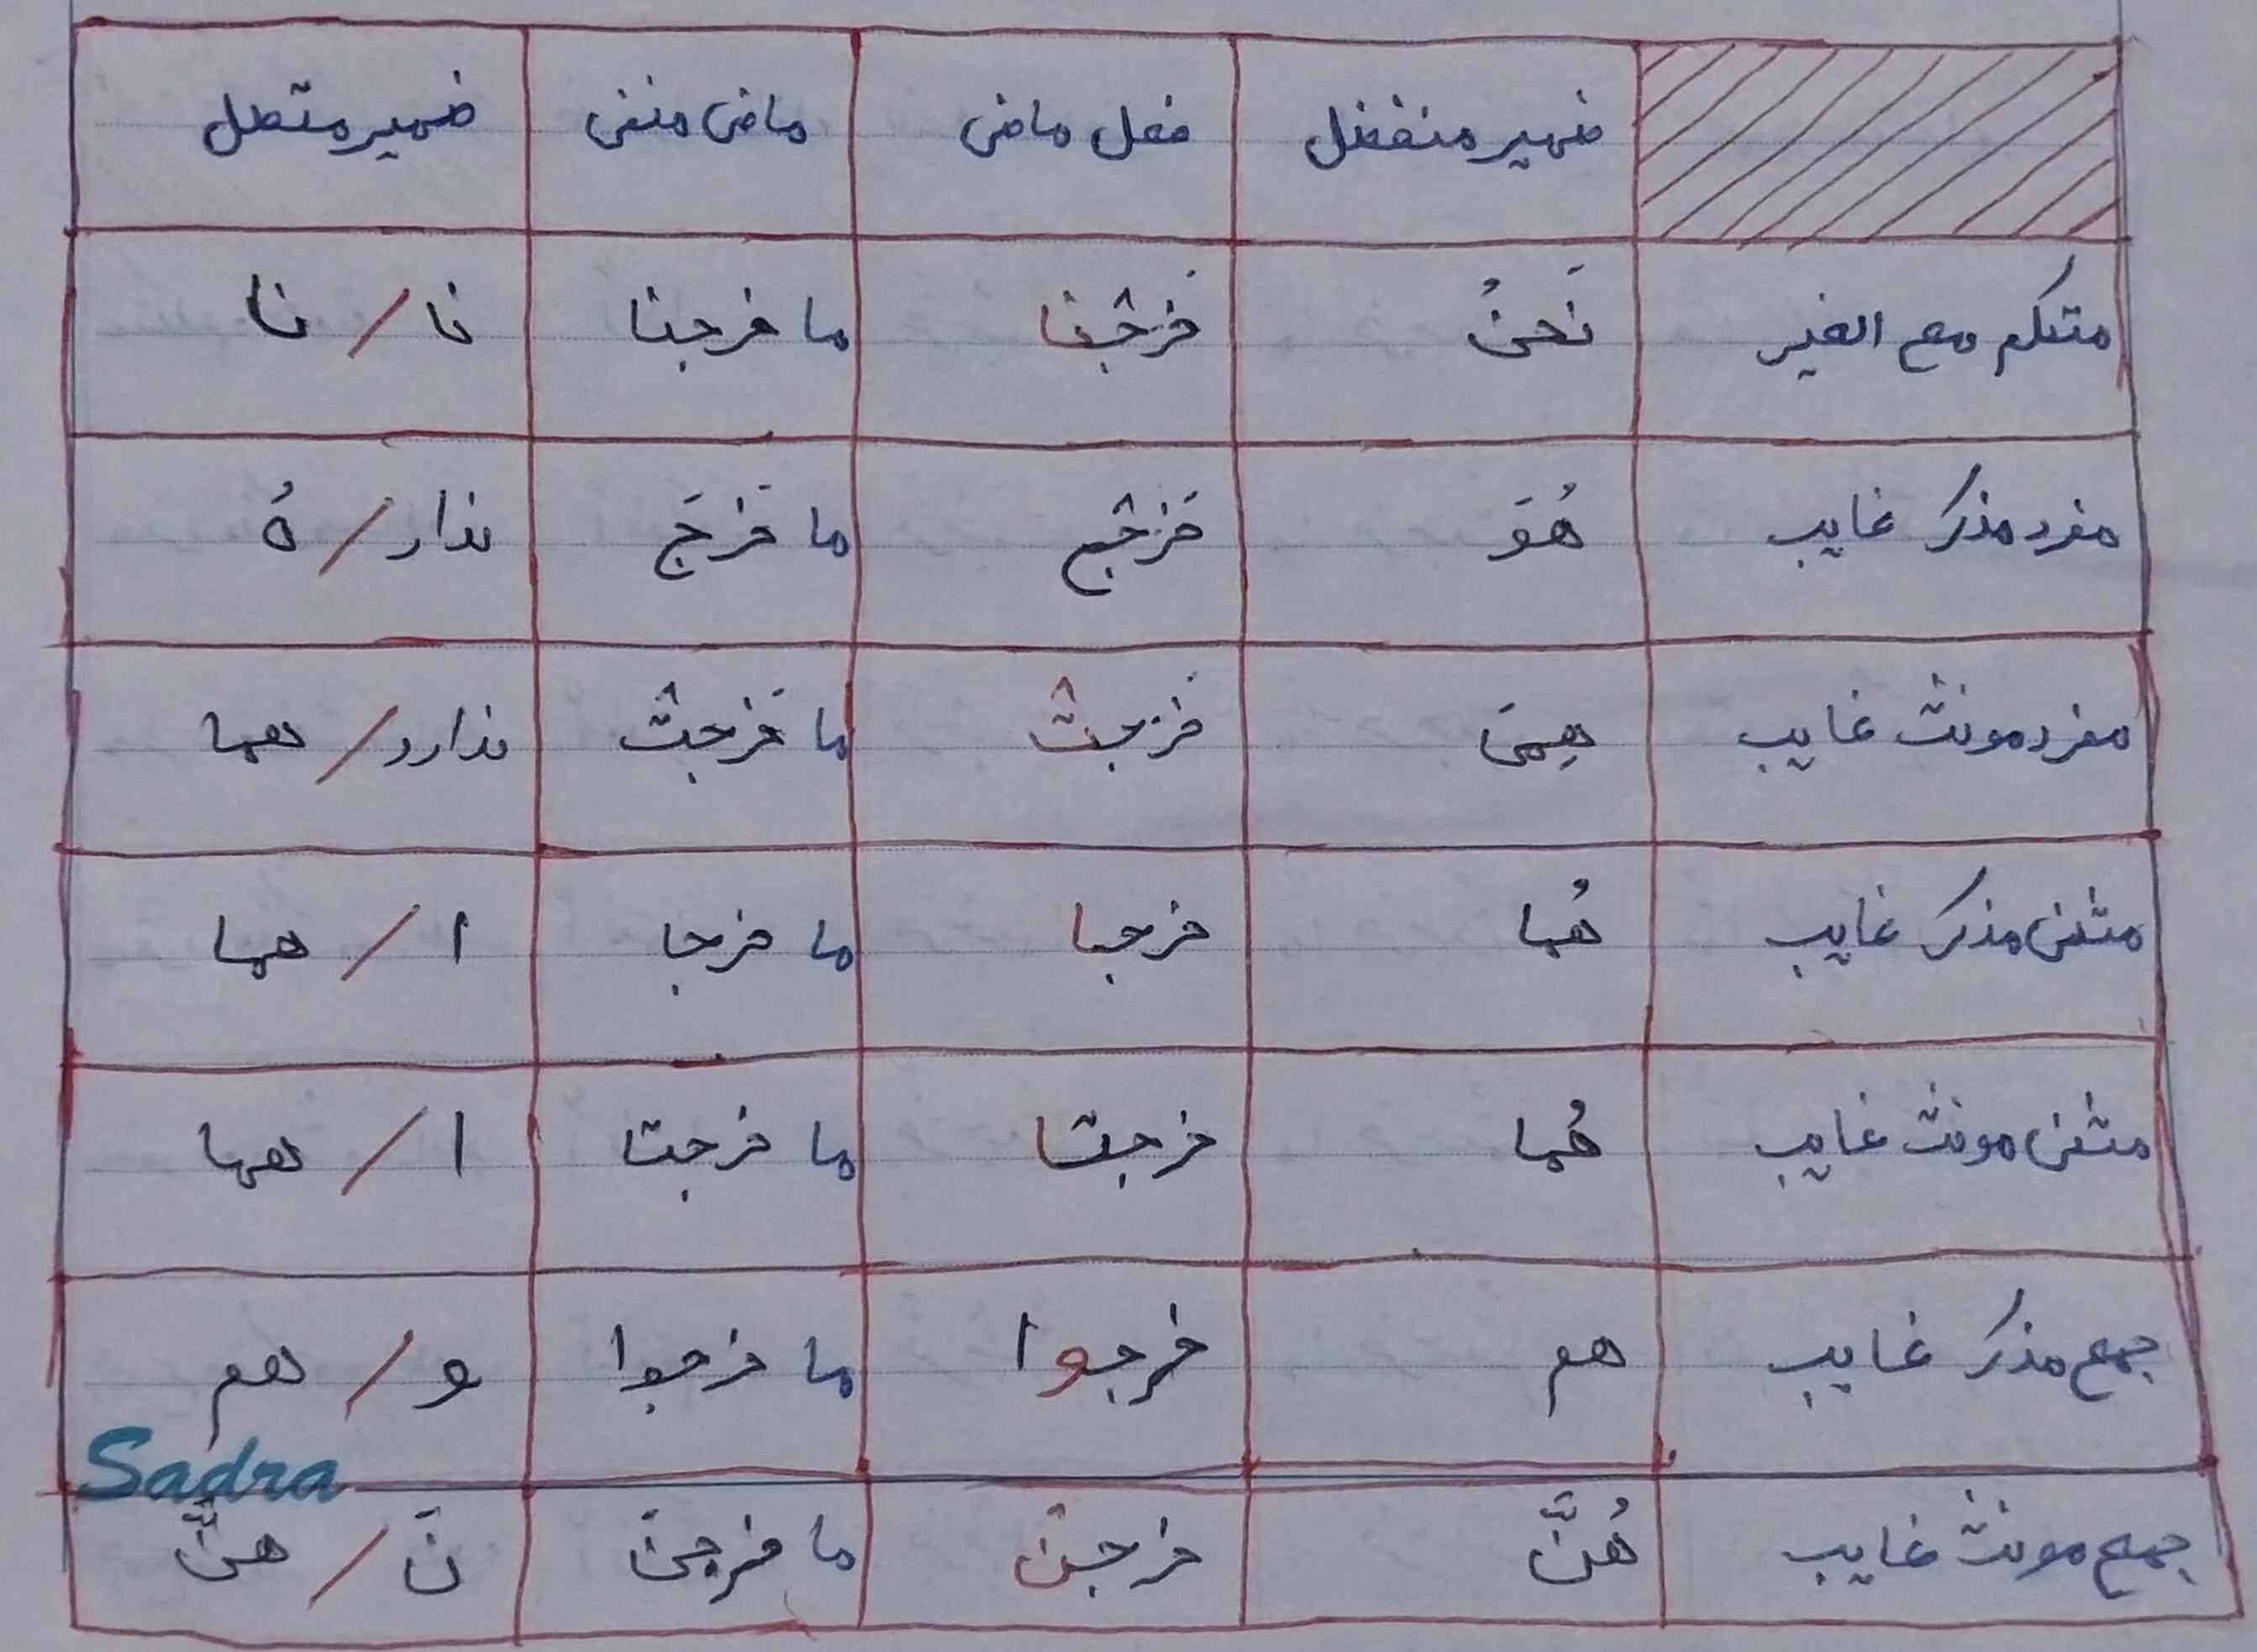 ضمیر منفصل فعل ماضی ماضی منفی ضمیر متصل
متکلم مع الغیر نَحنُ خَرَجْنا ما خرجنا نا / نا
مفرد مذکر غایب هُوَ خَرَجَ ما خَرَجَ ندارد / هُ
مفرد مونث غایب هِیَ خَرَجتْ ما خَرَجتْ ندارد / هما
مثنی مذکر غایب هُما خرجا ما خرجا ا / هما
مثنی مونث غایب هُما خرجتا ما خرجتا ا / هما
جمع مذکر غایب هم خرجوا ما خرجوا و / هم
Sadra
جمع مونث غایب هُنَّ خرجنَ ما خرجنَ نَ / هنَّ